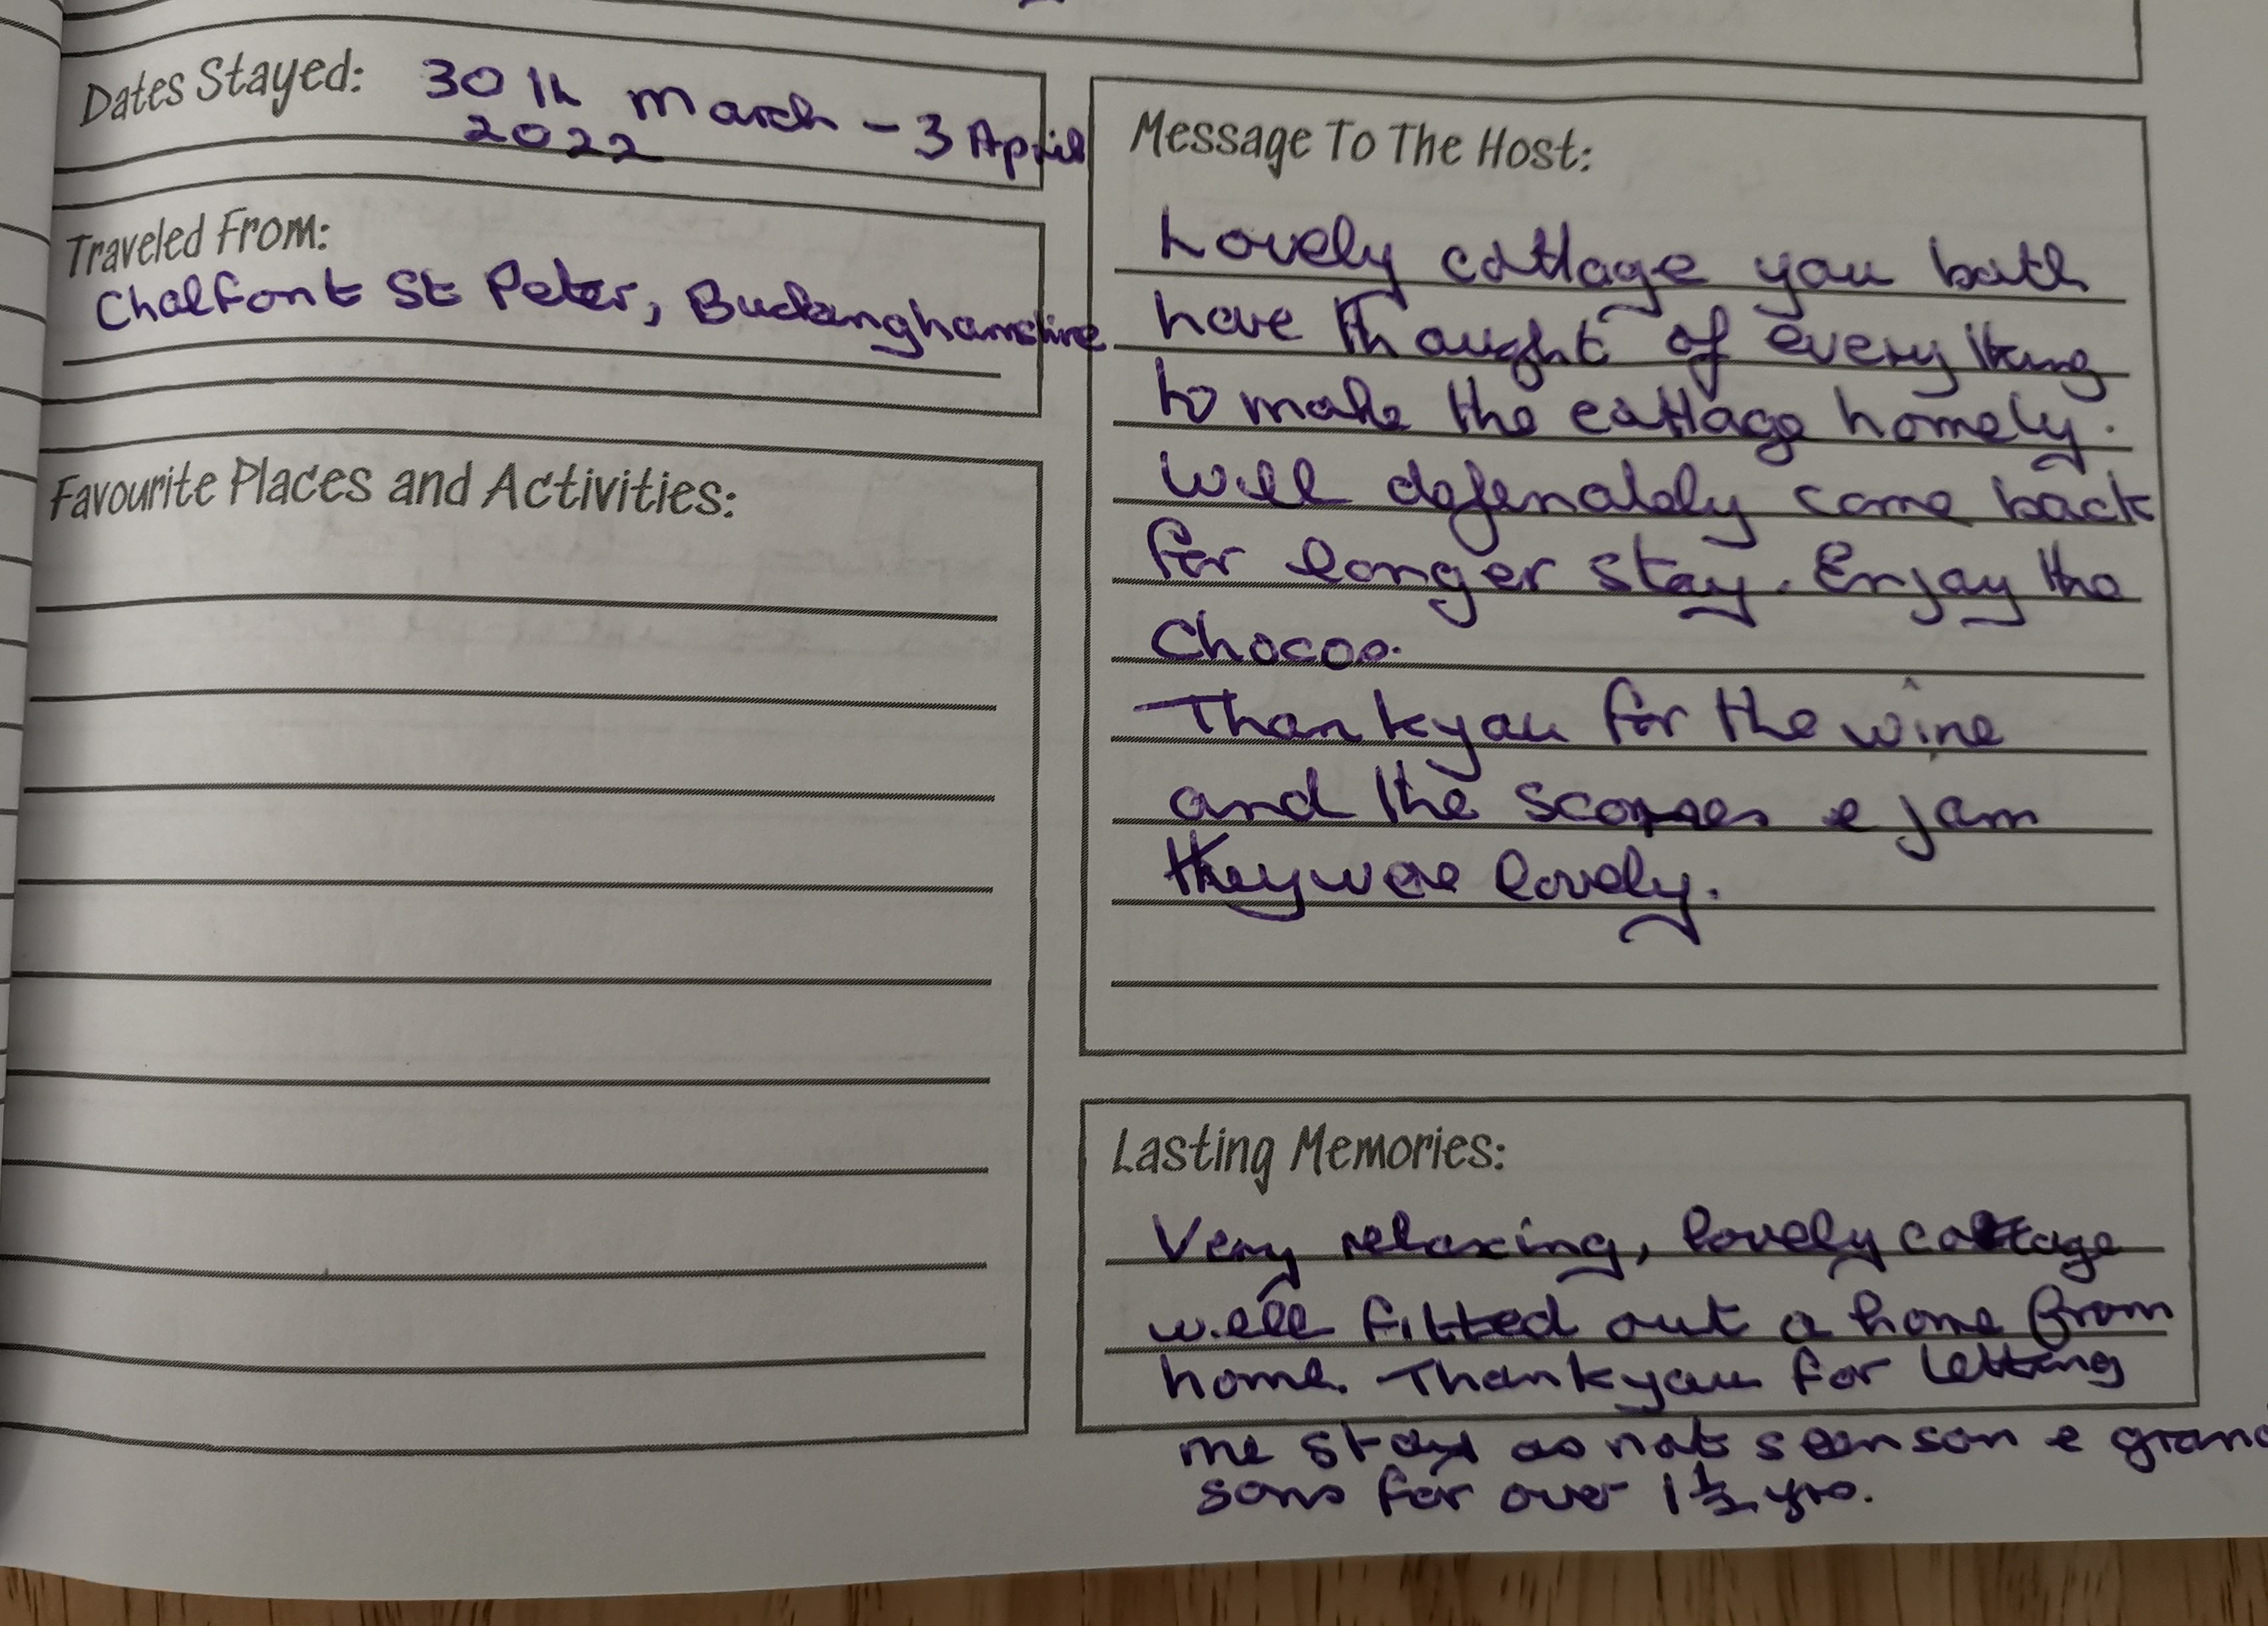 Dates Stayed: 30th March - 3 April
2022
Traveled From:
Chalfont St Peter, Buckinghamshire
Favourite Places and Activities:
Message To The Host:
Lovely cottage you both
have thought of everything
to make the cottage homely.
Will defenately come back
for longer stay. Enjoy the
Chocos.
Thankyou for the wine
and the scones & jam
they were lovely.
Lasting Memories:
Very relaxing, lovely cottage
well fitted out a home from
home. Thankyou for letting
me stay as not seen son & grand
sons for over 1½ yrs.